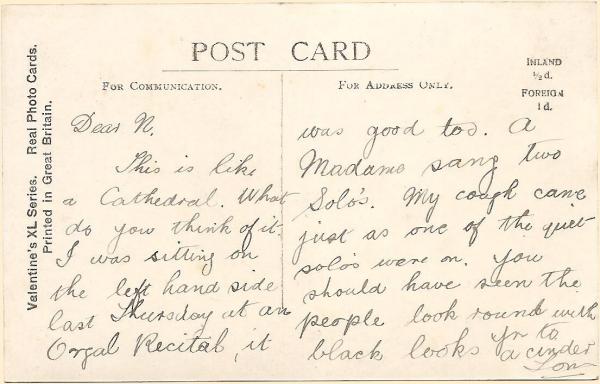 POST CARD
FOR COMMUNICATION.
FOR ADDRESS ONLY.
INLAND
½d.
FOREIGN
1d.
Valentine's XL Series. Real Photo Cards.
Printed in Great Britain.
Dear N.
This is like
a Cathedral. What
do you think of it.
I was sitting on
the left hand side
last Thursday at an
Orgal Recital, it
was good too. A
Madame sang two
Solo's. My cough came
just as one of the quiet
solo's were on. You
should have seen the
people look round with
black looks Yr to
a cinder